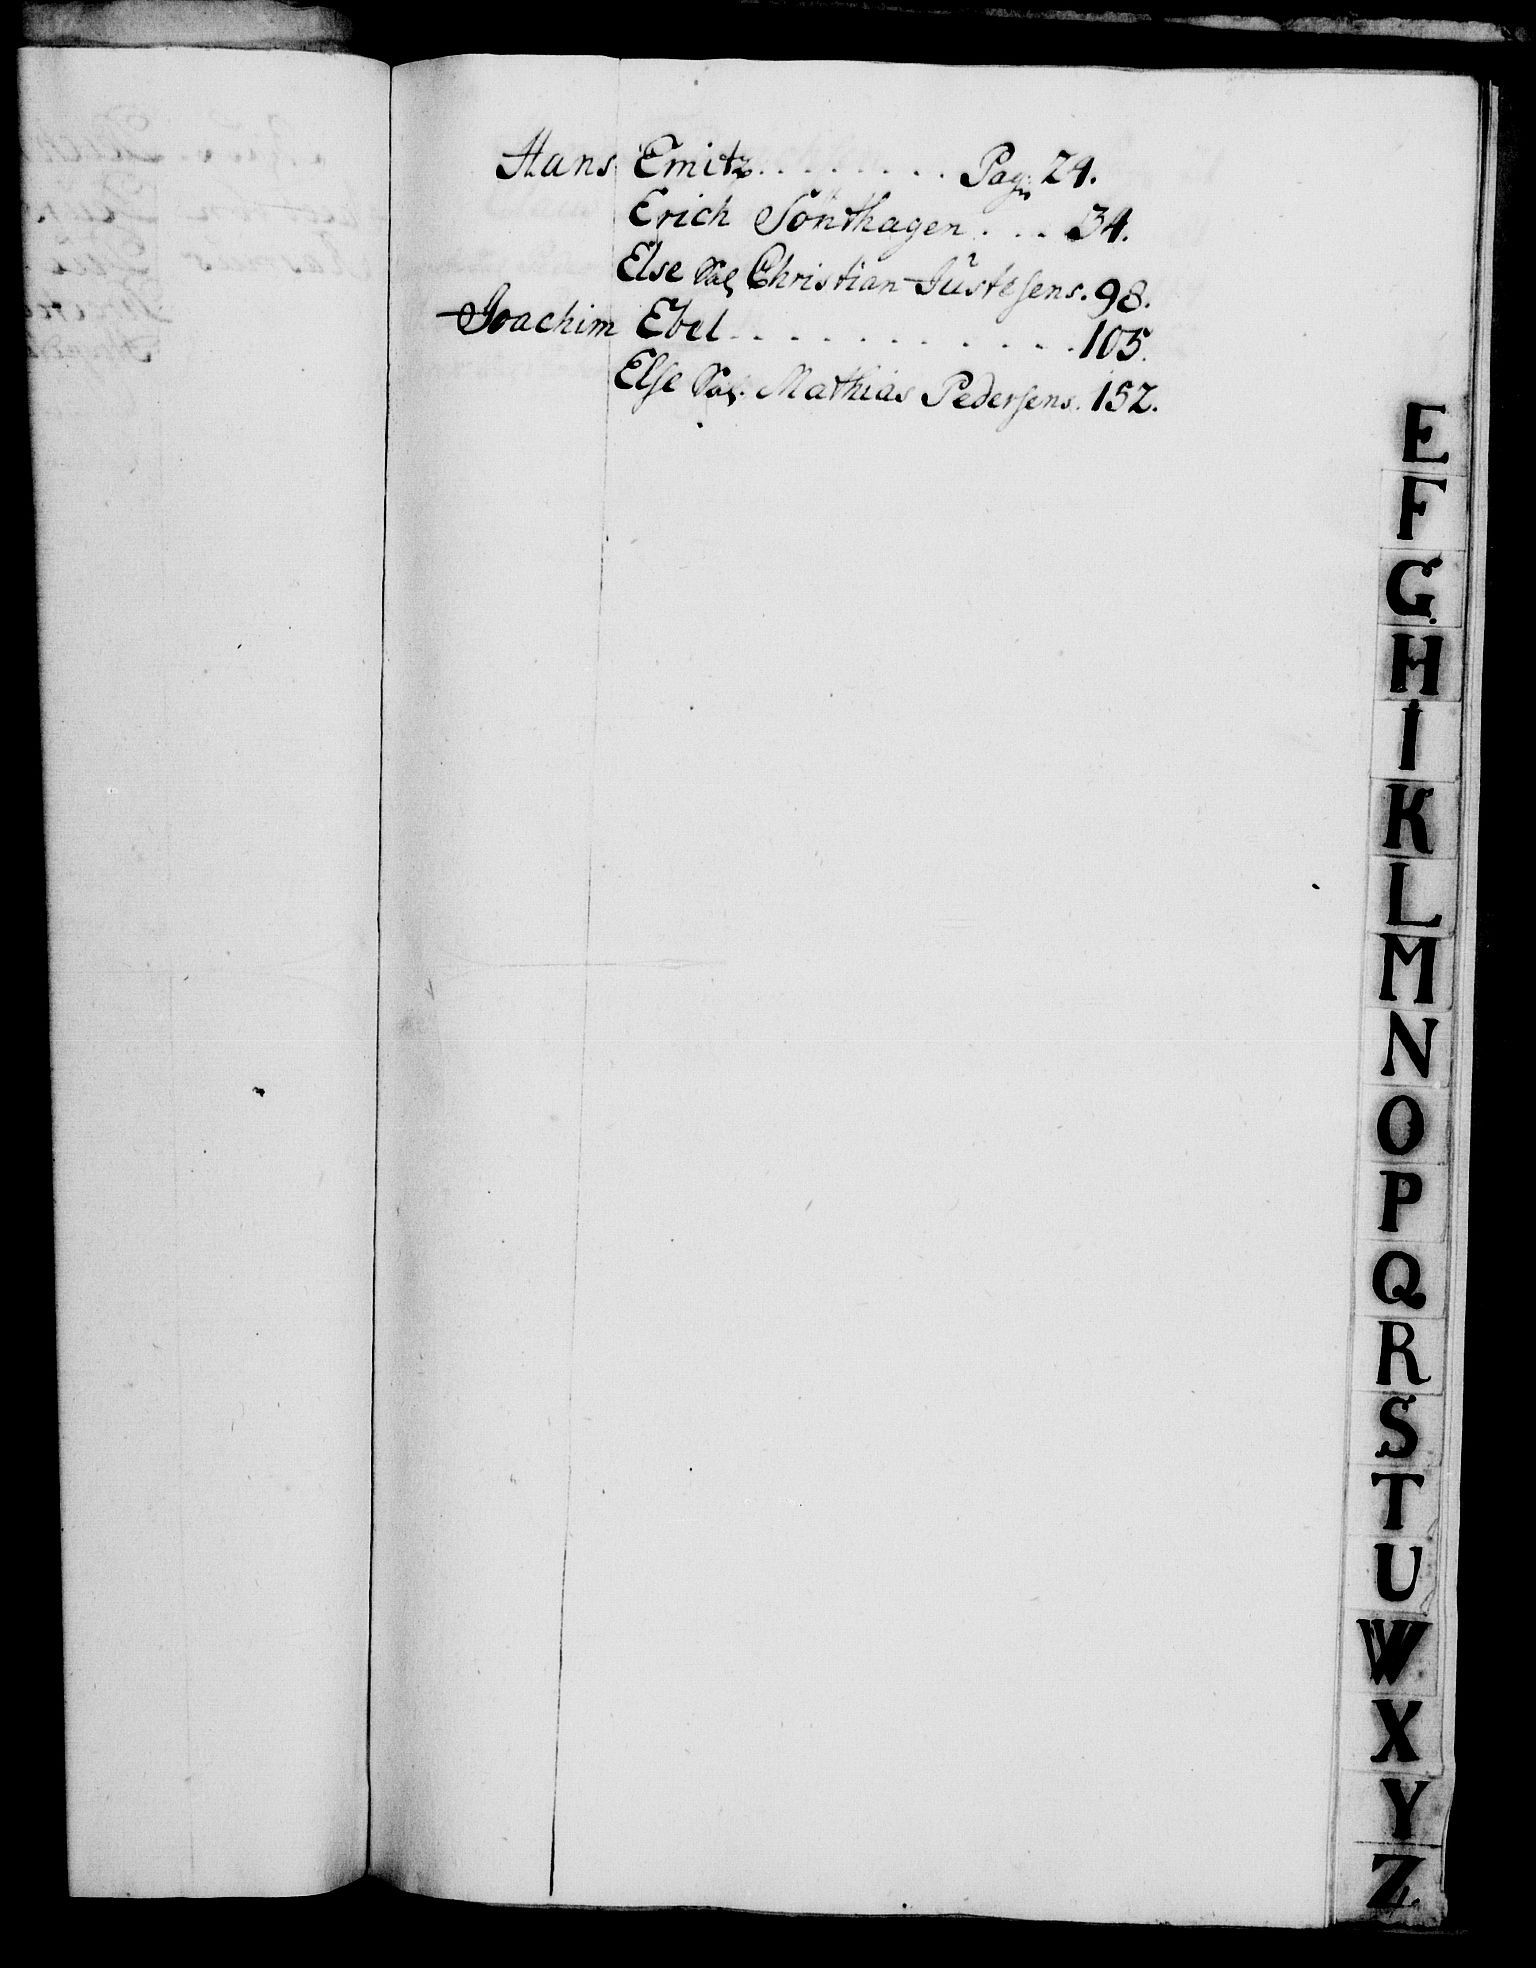 Hans Emitz. . . . . . . . Pag: 24.
Erich Sönthagen . . . 34.
Else Sal. Christian Jústesens. 98.
Joachim Ebel . . . . . . . . . . . . 105.
Else Sal. Mathias Pedersens. 152.
E
F
G.
H
I
K
L
M
N
O
P
Q
R
S
T
U
W
X
Y
Z